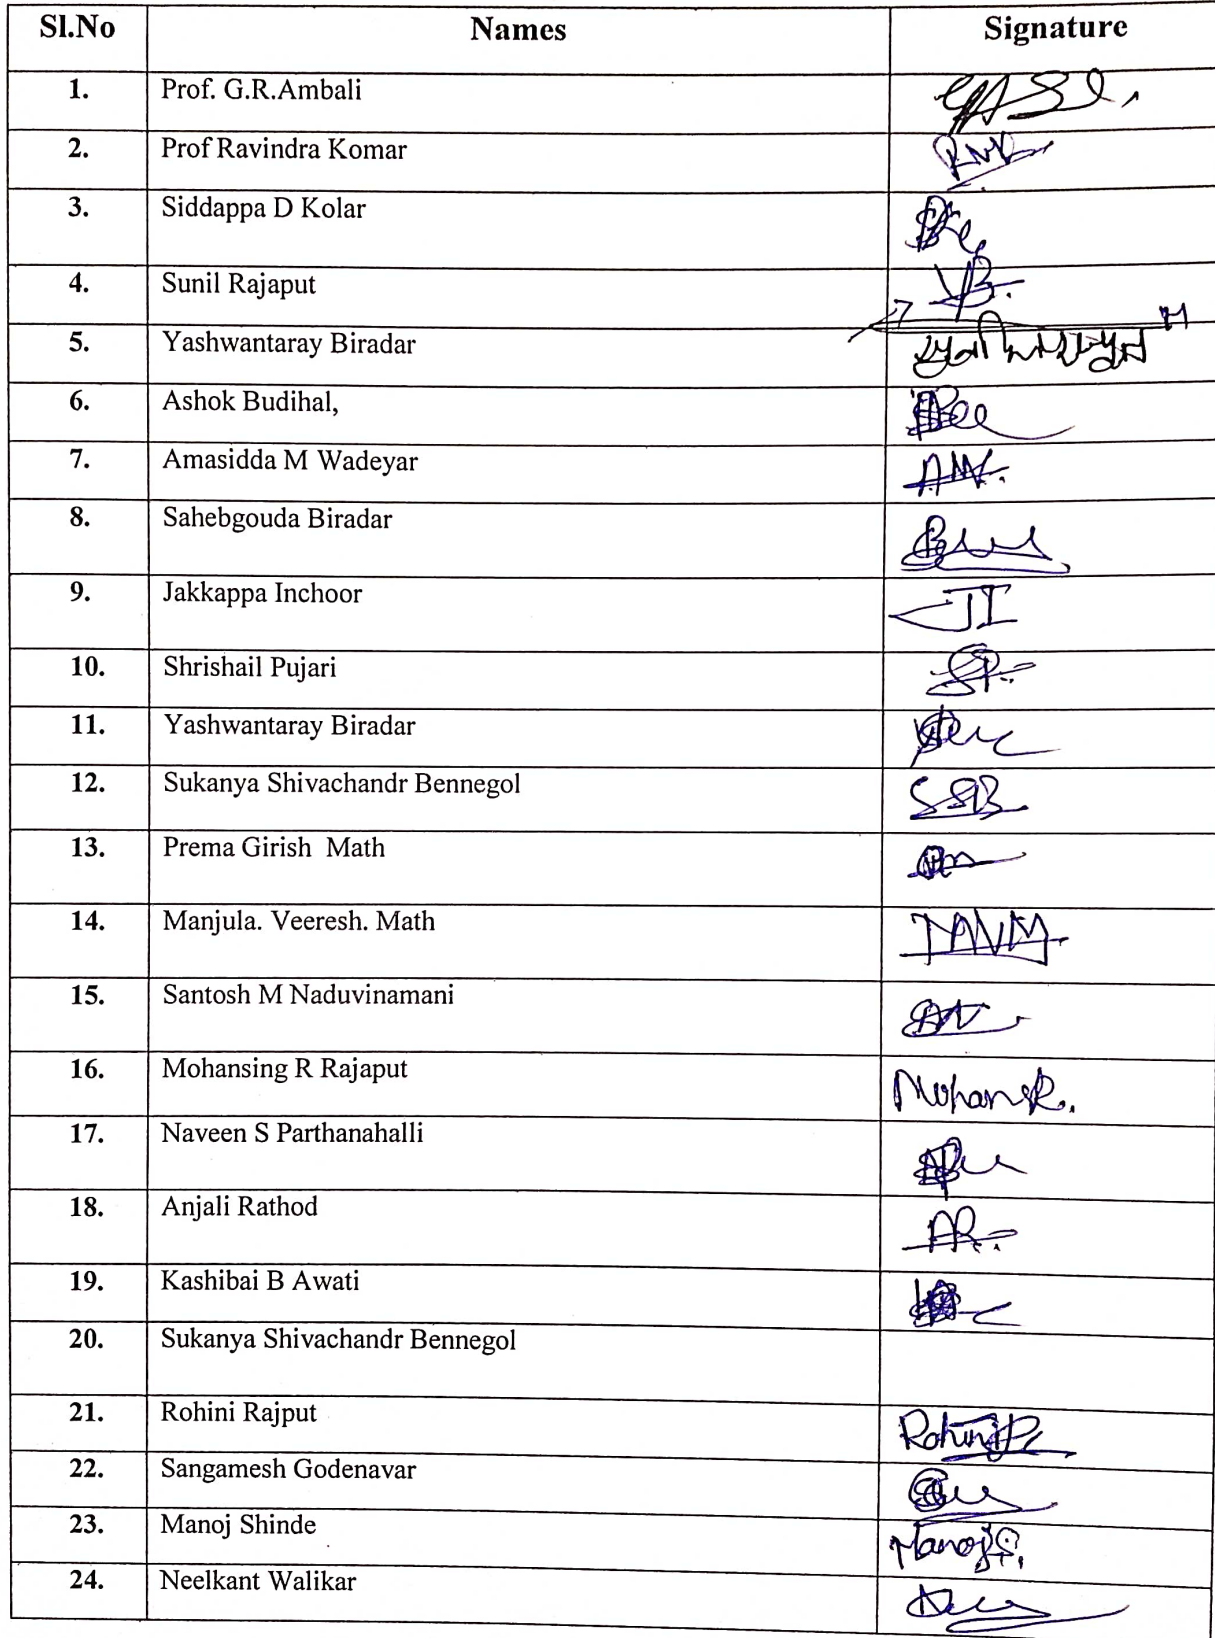 Sl.No Names Signature
1. Prof. G.R.Ambali
2. Prof Ravindra Komar
3. Siddappa D Kolar
4. Sunil Rajaput
5. Yashwantaray Biradar
6. Ashok Budihal,
7. Amasidda M Wadeyar AMW.
8. Sahebgouda Biradar
9. Jakkappa Inchoor JI
10. Shrishail Pujari SP.
11. Yashwantaray Biradar
12. Sukanya Shivachandr Bennegol SSB
13. Prema Girish Math
14. Manjula. Veeresh. Math MVM
15. Santosh M Naduvinamani
16. Mohansing R Rajaput MohansR.
17. Naveen S Parthanahalli
18. Anjali Rathod AR.
19. Kashibai B Awati
20. Sukanya Shivachandr Bennegol
21. Rohini Rajput
22. Sangamesh Godenavar
23. Manoj Shinde ManojS.
24. Neelkant Walikar